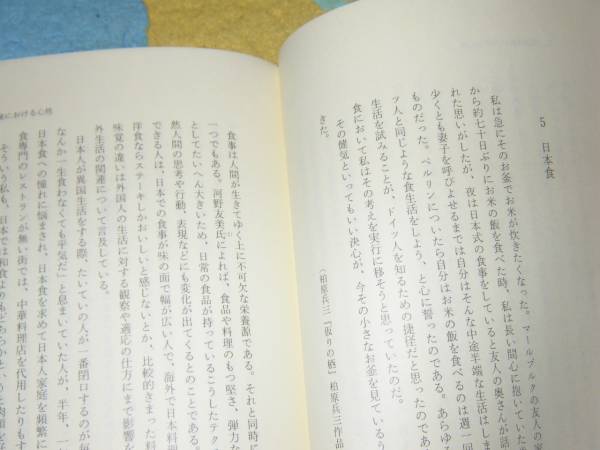 5 日本食
私は急にそのお釜でお米が炊きたくなった。マールブルクの友人の家
から約七十日ぶりにお米の飯を食べた時、私は長い間心に抱いていた
れた思いがしたが、夜は日本式の食事をしていると友人の奥さんが話
少くとも妻子を呼びよせるまでは自分はそんな中途半端な生活はしま
ものだった。ベルリンについたら自分はお米の飯を食べるのは週一回
ツ人と同じような食生活をしよう、と心に誓ったのである。あらゆる
生活を試みることが、ドイツ人を知るための捷径だと思ったのであ
食において私はその考えを実行に移そうと思っていたのだ。
その健気といってもいい決心が、今その小さなお釜を見ているう
きた。
(柏原兵三『仮りの栖』柏原兵三作品
食事は人間が生きてゆく上に不可欠な栄養源である。それと同時に
一つでもある。河野友美氏によれば、食品や料理のもつ堅さ、弾力な
としてたいへん大きいため、日常の食品が持っているこうしたテク
然人間の思考や行動、表現などにも変化が出てくるとのことである。
できる人は、日本での食事が味の面で幅が広い人で、海外で日本料理
洋食ならステーキしかおいしいと感じないとか、比較的きまった料
味覚の違いは外国人の生活に対する観察や適応の仕方にまで影響を
外生活の関連について言及している。
日本人が異国生活をする際、たいていの人が一番閉口するのが毎
なんか一生食わなくても平気だ」と息まいていた人が、半年、一
日本食への憧れに悩まされ、日本食を求めて日本人家庭を頻繁に
食専門のレストランが無い街では、中華料理店を代用したりもす
そういう私も、日本では和食よりもどちらかというと肉類を
における心性